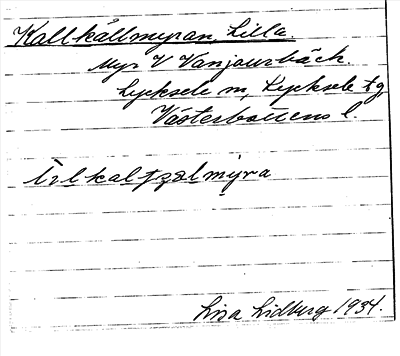 Kallkällmyran, Lilla.
Myr V Vanjaurbäck.
Lycksele sn, Lycksele tg
Västerbottens l.
kaltȷälmyra
Lisa Lidberg 1934.